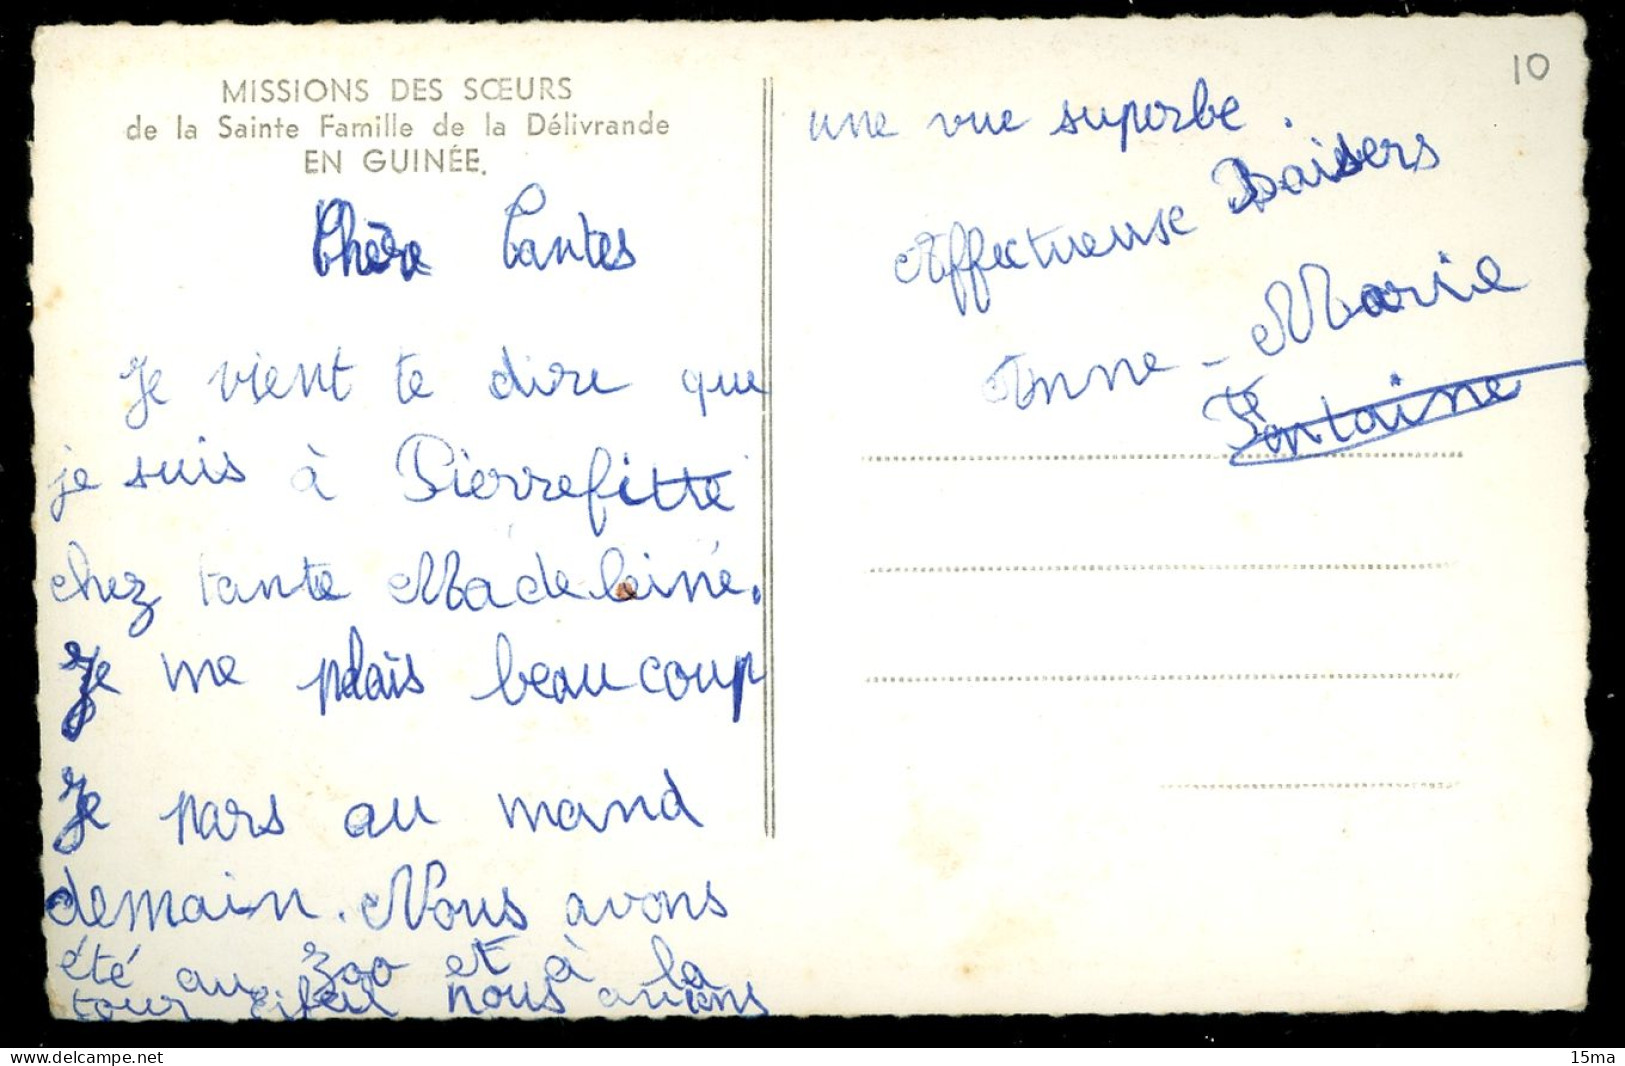 MISSIONS DES SŒURS
de la Sainte Famille de la Délivrande
EN GUINÉE.
Chère Tantes
Je vient te dire que
je suis à Pierrefitte
chez tante Madeleine.
Je me plais beaucoup
Je pars au mand
demain. Nous avons
été au zoo et à la
tour Eifeil nous avions
une vue superbe.
Affectueuse Baisers
Anne-Marie
Fontaine
10
delcampe.net
15ma